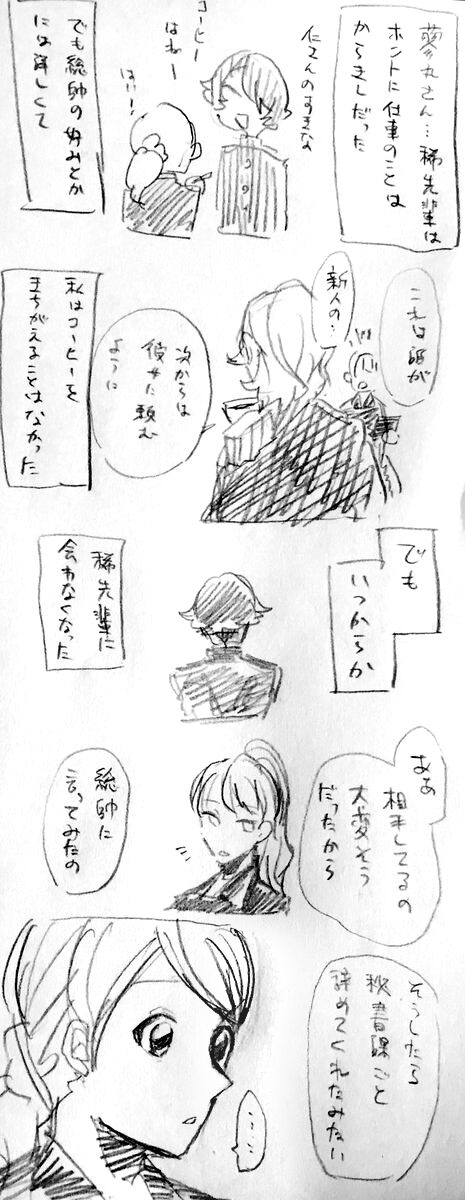 夢丸さん…稀先輩は
ホントに仕事のことは
からきしだった
仁さんのすきな
コーヒー
はねー
はい!
でも総帥の好みとか
には詳しくて
これは
新人の…
次からは
彼女に頼む
ように
私はコーヒーを
まちがえることはなかった
でも
いつからか
稀先輩に
会わなくなった
ああ
相手してるの
大変そう
だったから
総帥に
言ってみたの
そうしたら
秘書課ごと
辞めてくれたみたい
…